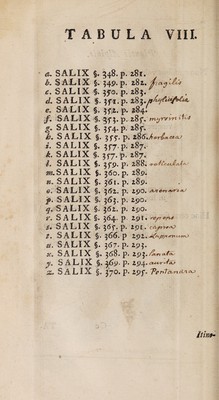 TABULA VIII.
a. SALIX §. 348. p. 281.
b. SALIX §. 349. p. 282. fragilis
c. SALIX §. 350. p. 283.
d. SALIX §. 351. p. 283. phylicifolia
e. SALIX §. 352. p. 284.
f. SALIX §. 353. p. 285. myrsinitis
g. SALIX §. 354. p. 285.
h. SALIX §. 355. p. 286. herbacea
i. SALIX §. 357. p. 287.
k. SALIX §. 357. p. 287.
l. SALIX §. 359. p. 288. reticulata
m. SALIX §. 360. p. 289.
n. SALIX §. 361. p. 289.
o. SALIX §. 362. p. 290. arenaria
p. SALIX §. 363. p. 290.
q. SALIX §. 362. p. 290.
r. SALIX §. 364. p. 291. repens
s. SALIX §. 365. p. 291. caprea
t. SALIX §. 366. p. 292. Lapponum
u. SALIX §. 367. p. 293.
x. SALIX §. 368. p. 293. lanata
y. SALIX §. 369. p. 294. aurita
z. SALIX §. 370. p. 295. Pentandra
Itine-